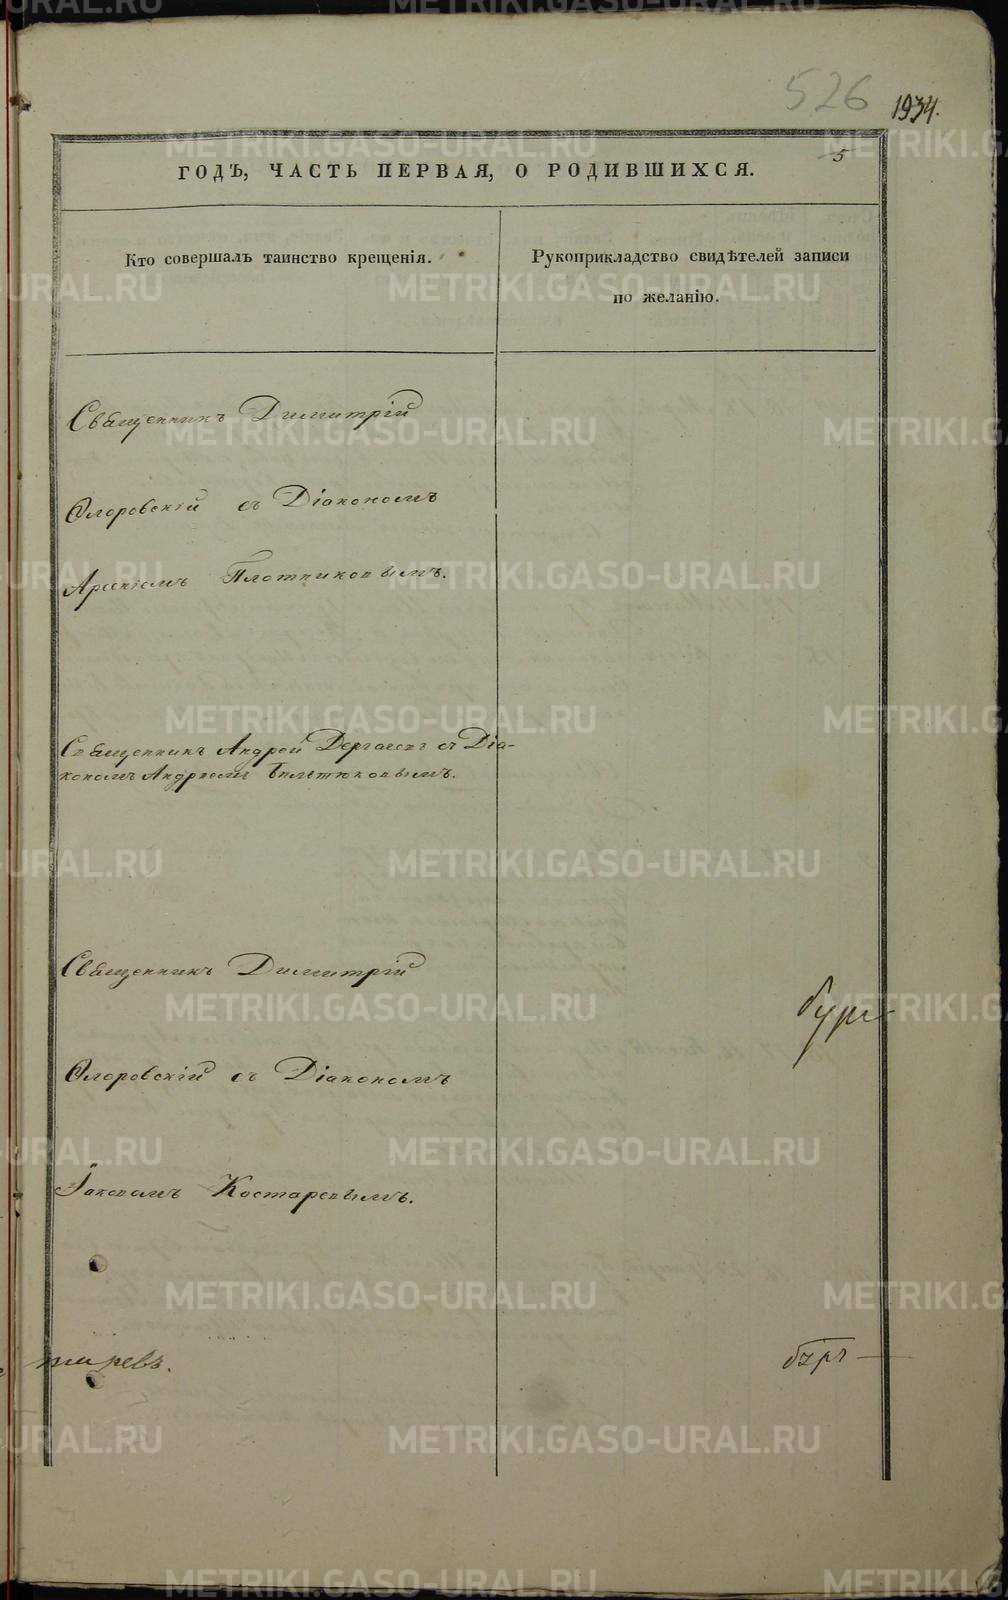 526 1934.
5
ГОДЪ, ЧАСТЬ ПЕРВАЯ, О РОДИВШИХСЯ.
Кто совершалъ таинство крещенія.
Рукоприкладство свидѣтелей записи
по желанію.
Священникъ Димитрій
Флоровскій съ Діакономъ
Арсеніемъ Плотниковымъ.
Священникъ Андрей Дергачевъ съ Діа-
кономъ Андреемъ Бѣлетюковымъ.
Священникъ Димитрій
Флоровскій съ Діакономъ
Іаковомъ Костаревымъ.
METRIKI.GASO-URAL.RU